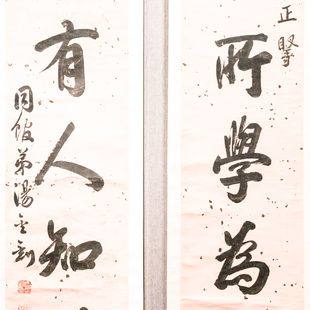 正
所學為
有人知
同館弟湯金釗